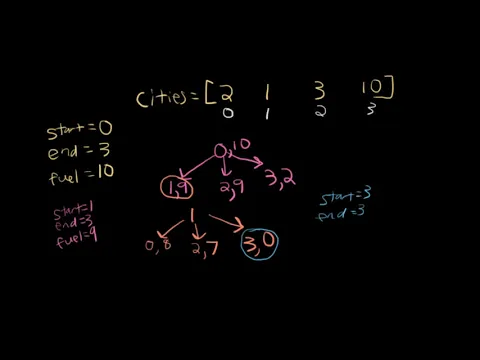 cities = [2 1 3 10]
0 1 2 3
start=0
end=3
fuel=10
0,10
1,9 2,9 3,2
start=1
end=3
fuel=9
1
0,8 2,7 3,0
start=3
end=3